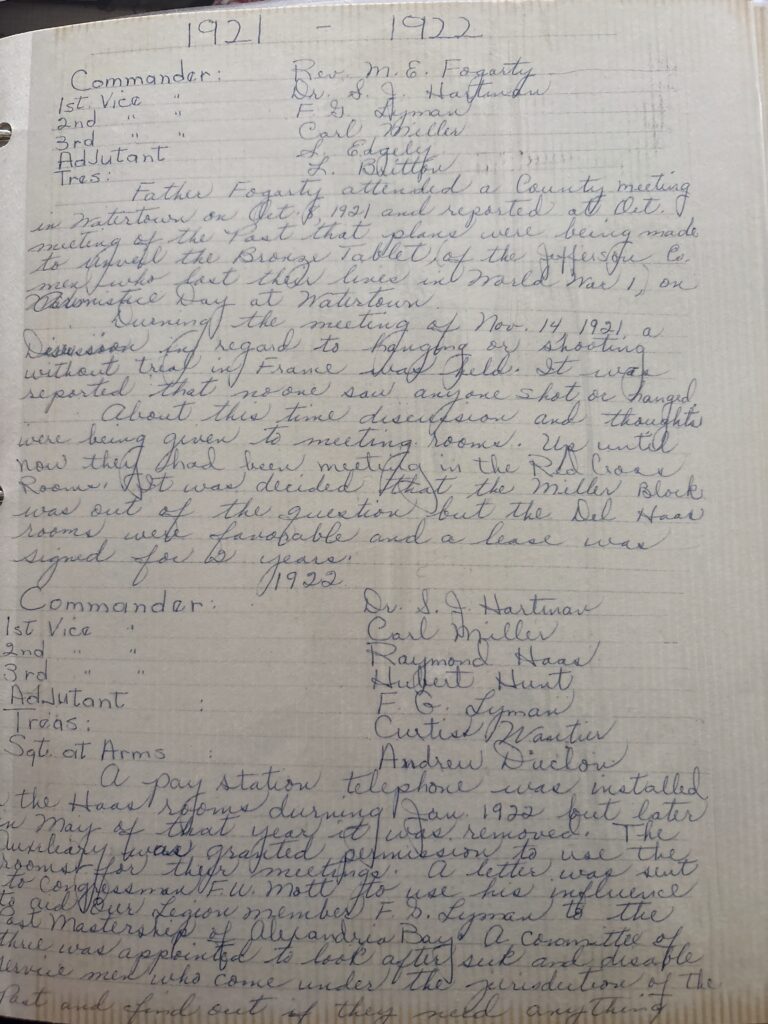 1921 - 1922
Commander: Rev. M. E. Fogarty
1st. Vice " Dr. S. J. Hartman
2nd " " F. G. Lyman
3rd " " Carl Miller
Adjutant L. Edgely
Tres: L. Britton
Father Fogarty attended a County meeting
in Watertown on Oct. 8, 1921 and reported at Oct.
meeting of the Post that plans were being made
to unveil the Bronze Tablet, of the Jefferson Co.
men who lost their lives in World War 1, on
Armistice Day at Watertown.
Durning the meeting of Nov. 14, 1921, a
Discussion in regard to hanging or shooting
without trial in France was held. It was
reported that no one saw anyone shot or hanged.
About this time discussion and thoughts
were being given to meeting rooms. Up until
now they had been meeting in the Red Cross
Rooms. It was decided that the Miller Block
was out of the question but the Del Haas
rooms were favorable and a lease was
signed for 2 years.
1922
Commander: Dr. S. J. Hartman
1st Vice " Carl Miller
2nd " " Raymond Haas
3rd " " Hubert Hunt
Adjutant : F. G. Lyman
Treas: Curtiss Wautier
Sgt. at Arms : Andrew Duclon
A pay station telephone was installed
the Haas rooms durning Jan. 1922 but later
in May of that year it was removed. The
Auxiliary was granted permission to use the
rooms for their meetings. A letter was sent
to Congressman F.W. Mott to use his influence
to aid Our Legion member F. G. Lyman to the
Post Mastership of Alexandria Bay. A committee of
three was appointed to look after sick and disable
service men who come under the jurisdiction of the
Post and find out if they need anything